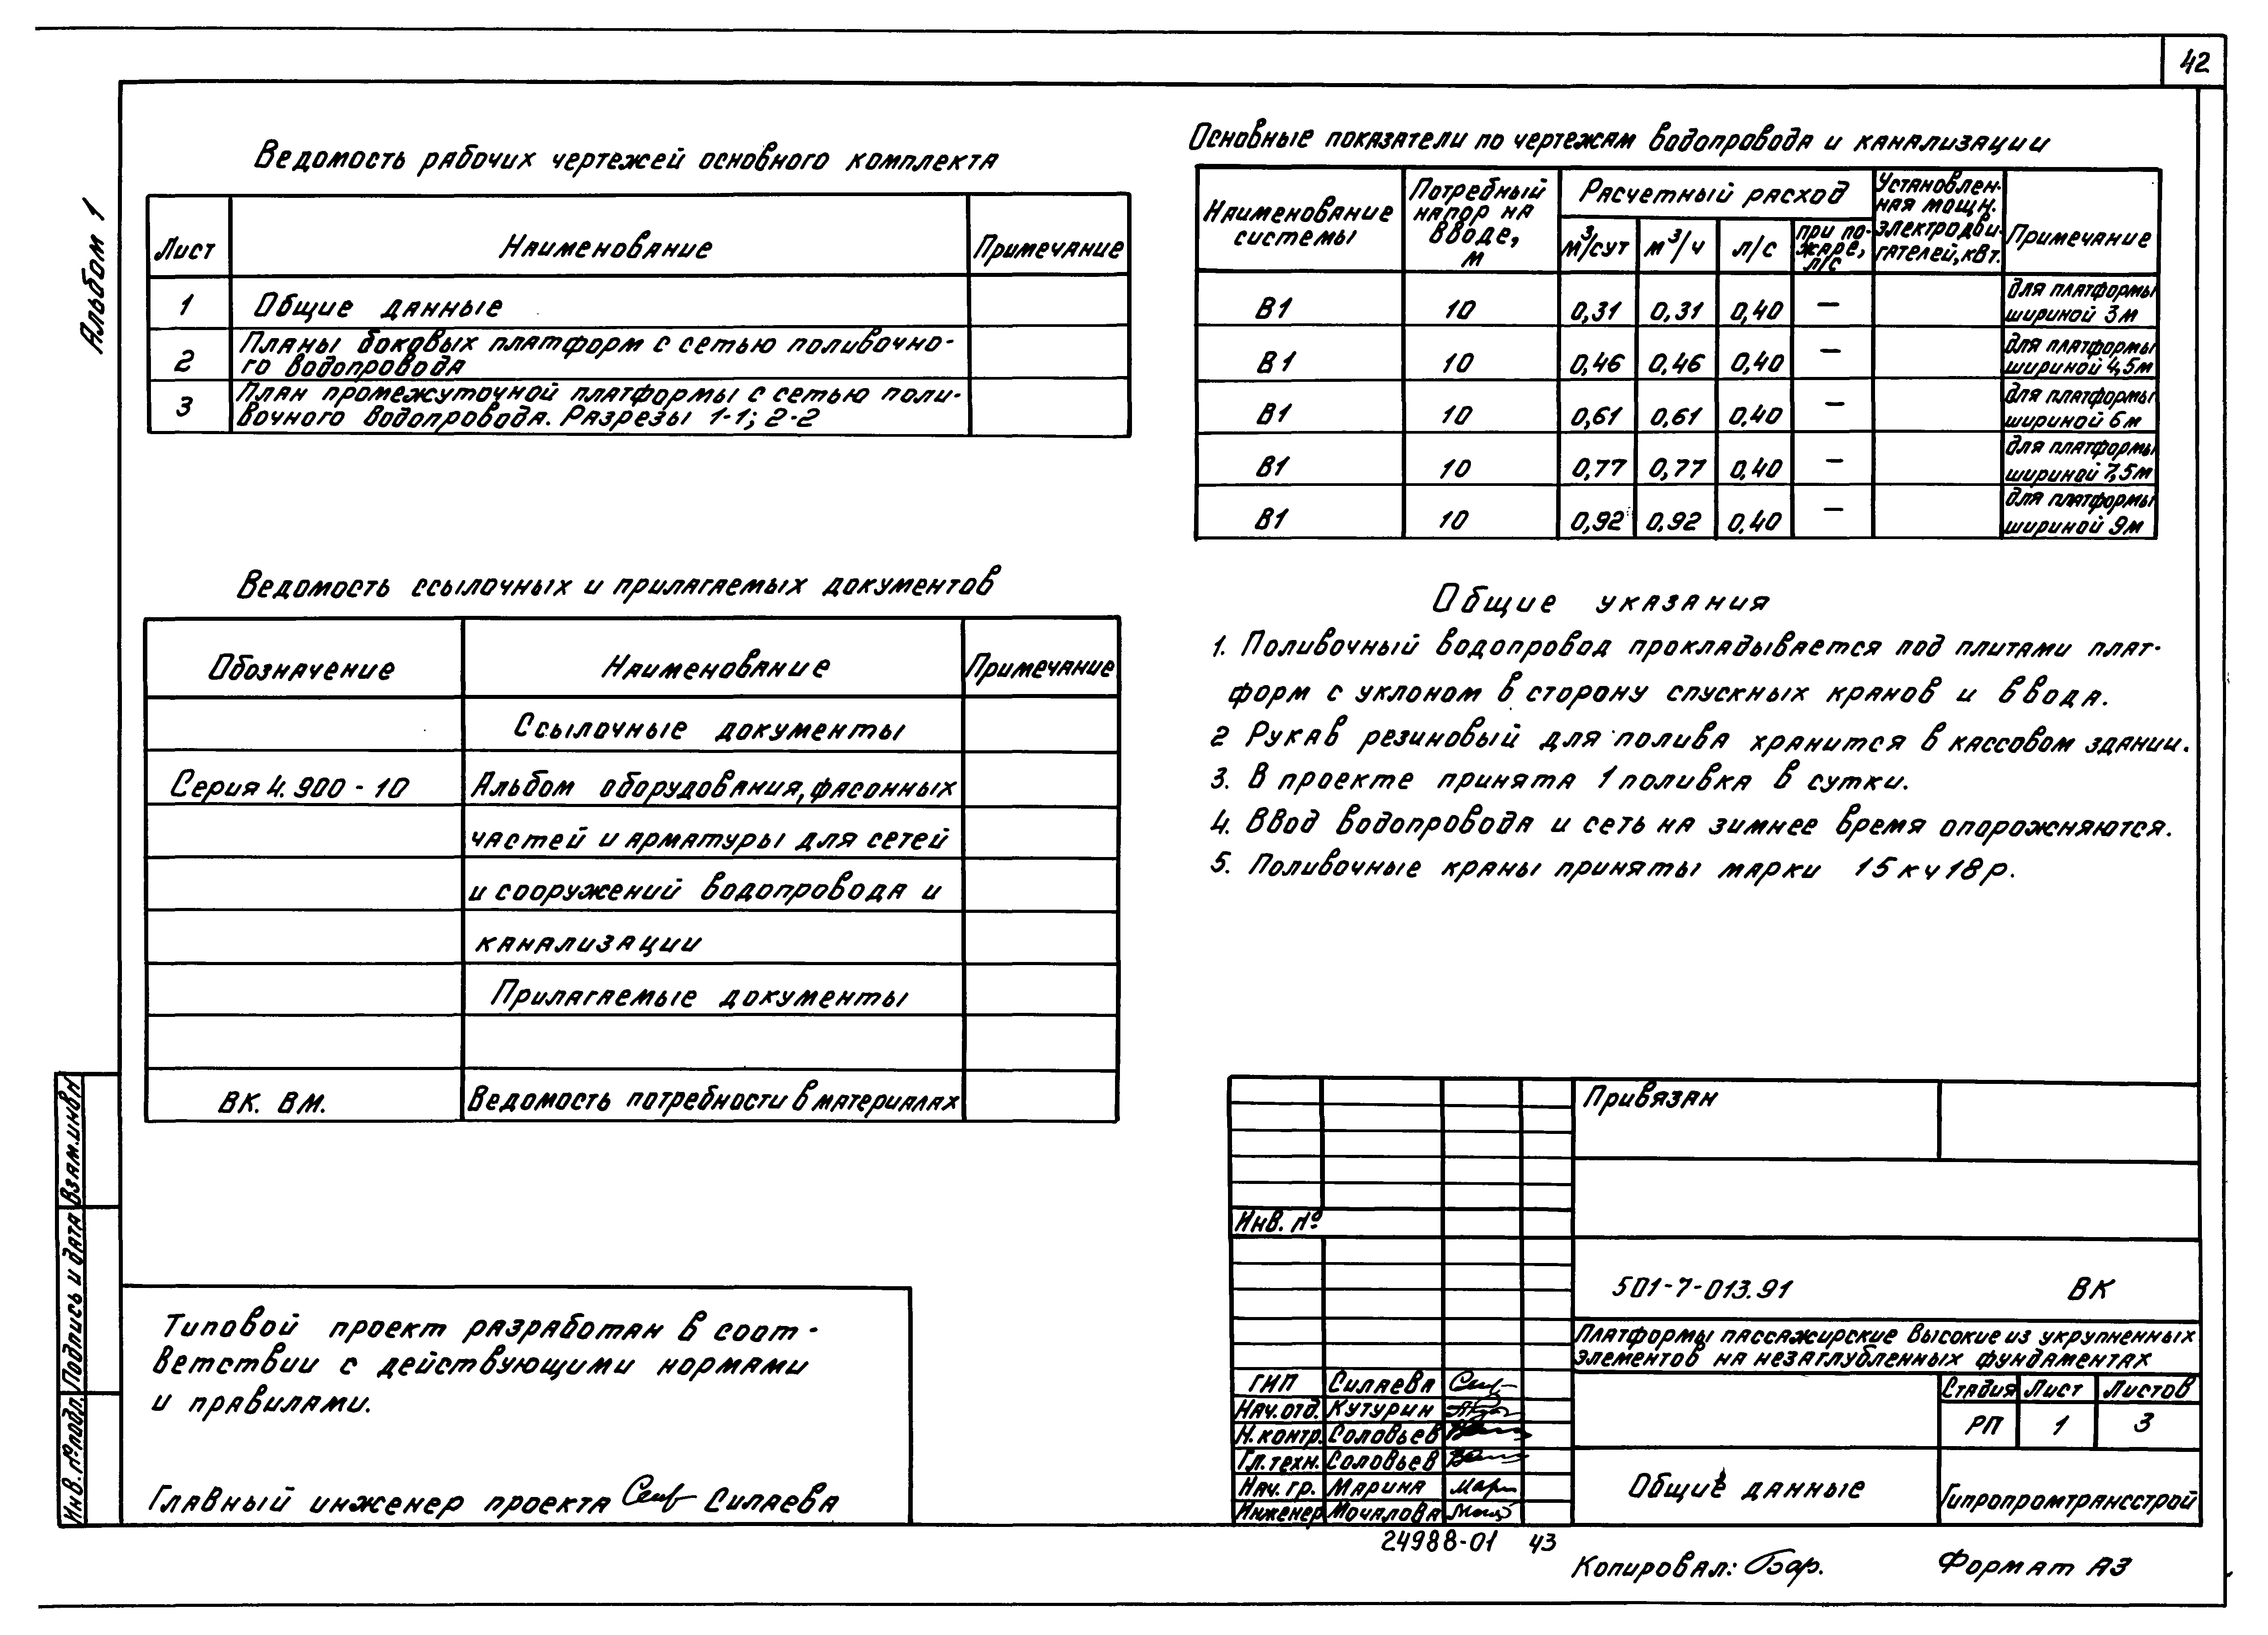 42
Альбом 1
Ведомость рабочих чертежей основного комплекта
Лист Наименование Примечание
1 Общие данные
2 Планы боковых платформ с сетью поливочно-
го водопровода
3 План промежуточной платформы с сетью поли-
вочного водопровода. Разрезы 1-1; 2-2
Основные показатели по чертежам водопровода и канализации
Наименование
системы
Потребный
напор на
вводе,
м
Расчетный расход
м³/сут м³/ч л/с
при по-
жаре,
л/с
Установлен-
ная мощн.
электродви-
гателей, квт.
Примечание
В1 10 0,31 0,31 0,40 — для платформы
шириной 3м
В1 10 0,46 0,46 0,40 — для платформы
шириной 4,5м
В1 10 0,61 0,61 0,40 — для платформы
шириной 6м
В1 10 0,77 0,77 0,40 — для платформы
шириной 7,5м
В1 10 0,92 0,92 0,40 — для платформы
шириной 9м
Ведомость ссылочных и прилагаемых документов
Обозначение Наименование Примечание
Ссылочные документы
Серия 4.900-10 Альбом оборудования, фасонных
частей и арматуры для сетей
и сооружений водопровода и
канализации
Прилагаемые документы
ВК. ВМ. Ведомость потребности в материалах
Общие указания
1. Поливочный водопровод прокладывается под плитами плат-
форм с уклоном в сторону спускных кранов и ввода.
2 Рукав резиновый для полива хранится в кассовом здании.
3. В проекте принята 1 поливка в сутки.
4. Ввод водопровода и сеть на зимнее время опорожняются.
5. Поливочные краны приняты марки 15кч18р.
Типовой проект разработан в соот-
ветствии с действующими нормами
и правилами.
Главный инженер проекта Силаева
Взам.инв.№
Подпись и дата
Инв. № подл.
Привязан
Инв. №
501-7-013.91 ВК
Платформы пассажирские высокие из укрупненных
элементов на незаглубленных фундаментах
ГИП Силаева
Нач.отд. Кутурин
Н.контр. Соловьев
Гл.техн. Соловьев
Нач.гр. Марина
Инженер Мочалова
Стадия Лист Листов
РП 1 3
Общие данные
Гипропромтрансстрой
24988-01 43
Копировал:
Формат А3